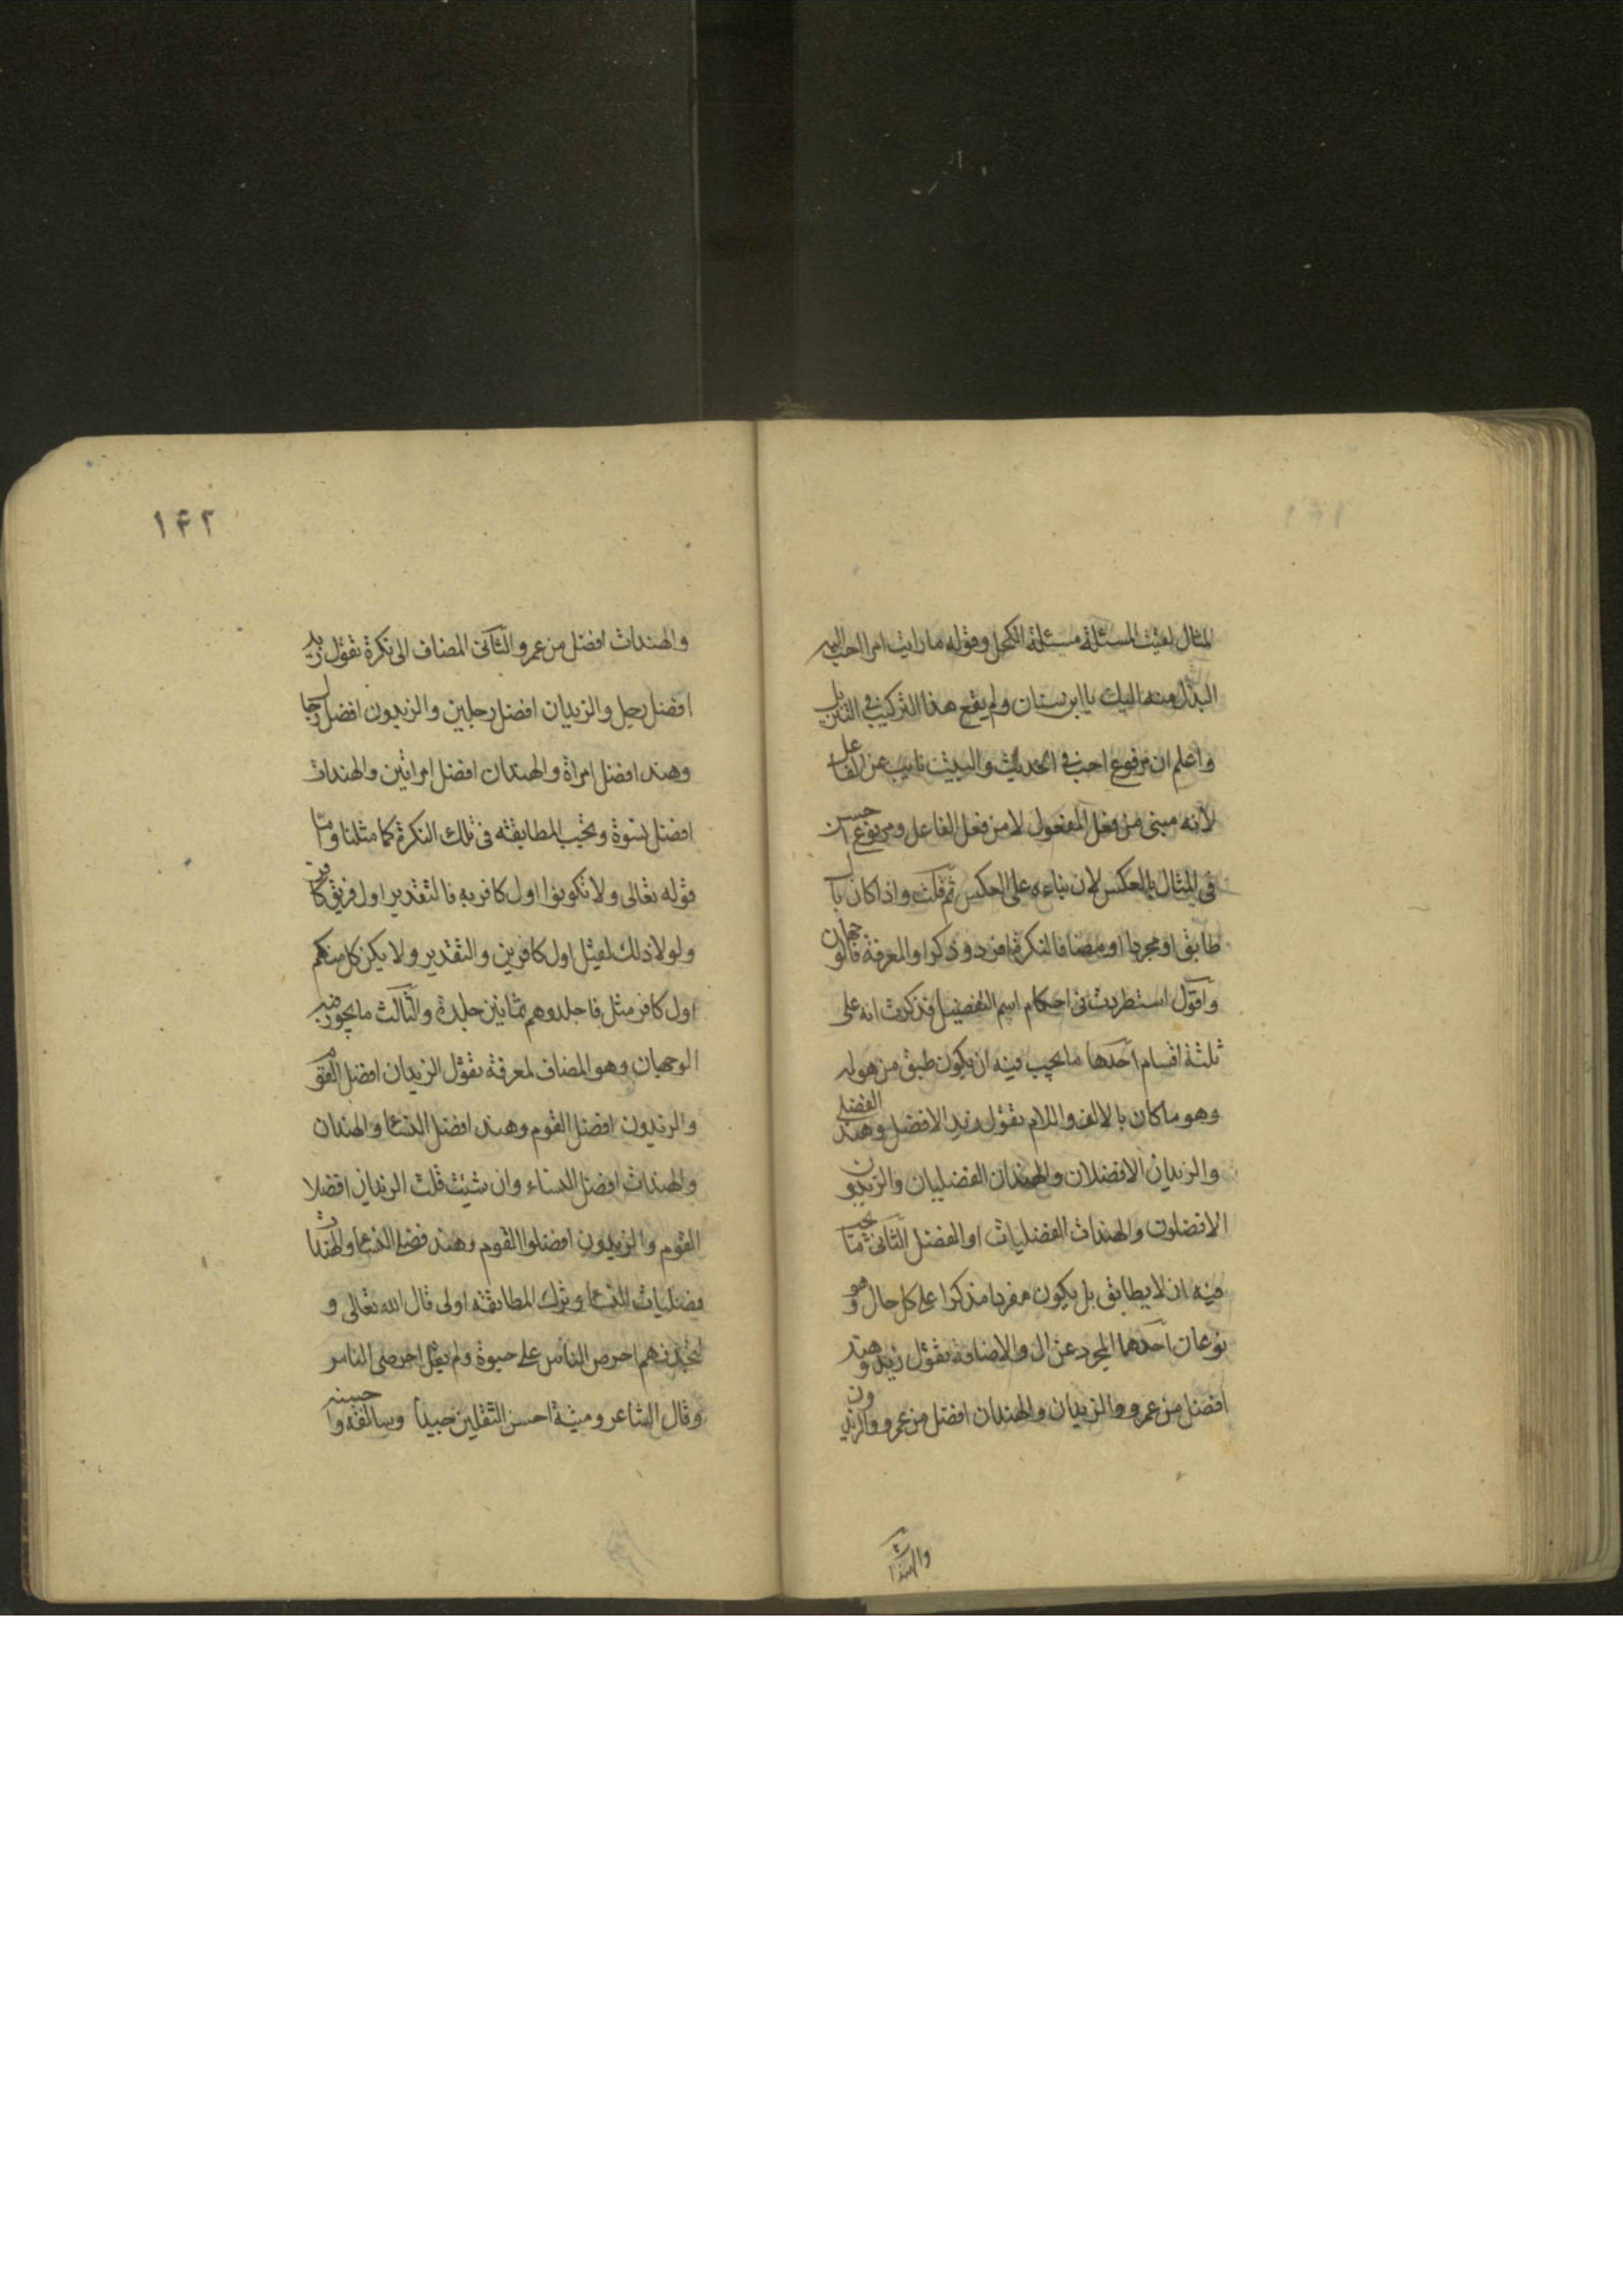 المثال لقبت المسئلة مسئلة الكحل وقوله ما رايت امرا احب اليه
البذل منه اليك يا ابن سنان ولم يقع هذا التركيب في التنزيل
واعلم ان مرفوع احب في الحديث والبيت نايب عن الفاعل
لانه مبنى من فعل المفعول لا من فعل الفاعل ومرفوع احسن
في المثال بالعكس لان بناءه على العكس ثم قلت واذا كان بال
طابق او مجردا او مضافا لنكرة افرد وذكر او لمعرفة فالوجهان
واقول استطردت في احكام اسم التفضيل فذكرت انه على
ثلثة اقسام احدها ما يجب فيه ان يكون طبق من هو له
وهو ما كان بالالف واللام تقول زيد الافضل وهند الفضلى
والزيدان الافضلان والهندان الفضليان والزيدون
الافضلون والهندات الفضليات او الفضل الثانى ما يجب
فيه ان لا يطابق بل يكون مفردا مذكرا على كل حال وهو
نوعان احدهما المجرد عن ال والاضافة تقول زيد وهند
افضل من عمرو والزيدان والهندان افضل من عمرو والزيدون
والهندا
۱۴۲
والهندات افضل من عمرو والثانى المضاف الى نكرة تقول زيد
افضل رجل والزيدان افضل رجلين والزيدون افضل رجال
وهند افضل امراة والهندان افضل امراتين والهندات
افضل نسوة وتجب المطابقة فى تلك النكرة كما مثلنا واما
قوله تعالى ولا تكونوا اول كافر به فالتقدير اول فريق كافر
ولولا ذلك لقيل اول كافرين والتقدير ولا يكن كل منكم
اول كافر مثل فاجلدوهم ثمانين جلدة والثالث ما يجوز فيه
الوجهان وهو المضاف لمعرفة تقول الزيدان افضل القوم
والزيدون افضل القوم وهند افضل النساء والهندان
والهندات افضل النساء وان شئت قلت الزيدان افضلا
القوم والزيدون افضلوا القوم وهند فضلى النساء والهندات
فضليات النساء وترك المطابقة اولى قال الله تعالى و
لتجدنهم احرص الناس على حيوة ولم يقل احرصى الناس
وقال الشاعر ومية احسن الثقلين جيدا وسالفة واحسنه